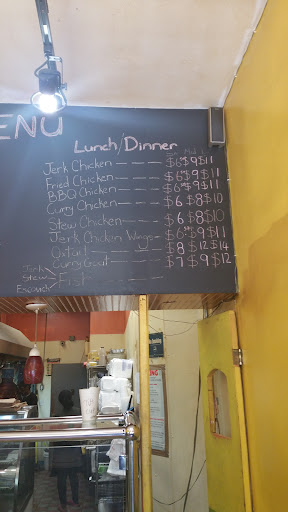 ENU
Lunch/Dinner
Jerk Chicken --- $6 $9 $11
Fried Chicken --- $6 $9 $11
BBQ Chicken --- $6 $9 $11
Curry Chicken --- $6 $8 $10
Stew Chicken --- $6 $8 $10
Jerk Chicken Wings - $6 $9 $11
Oxtail --- $8 $12 $14
Curry Goat --- $7 $9 $12
Jerk
Stew
Escovich
Fish